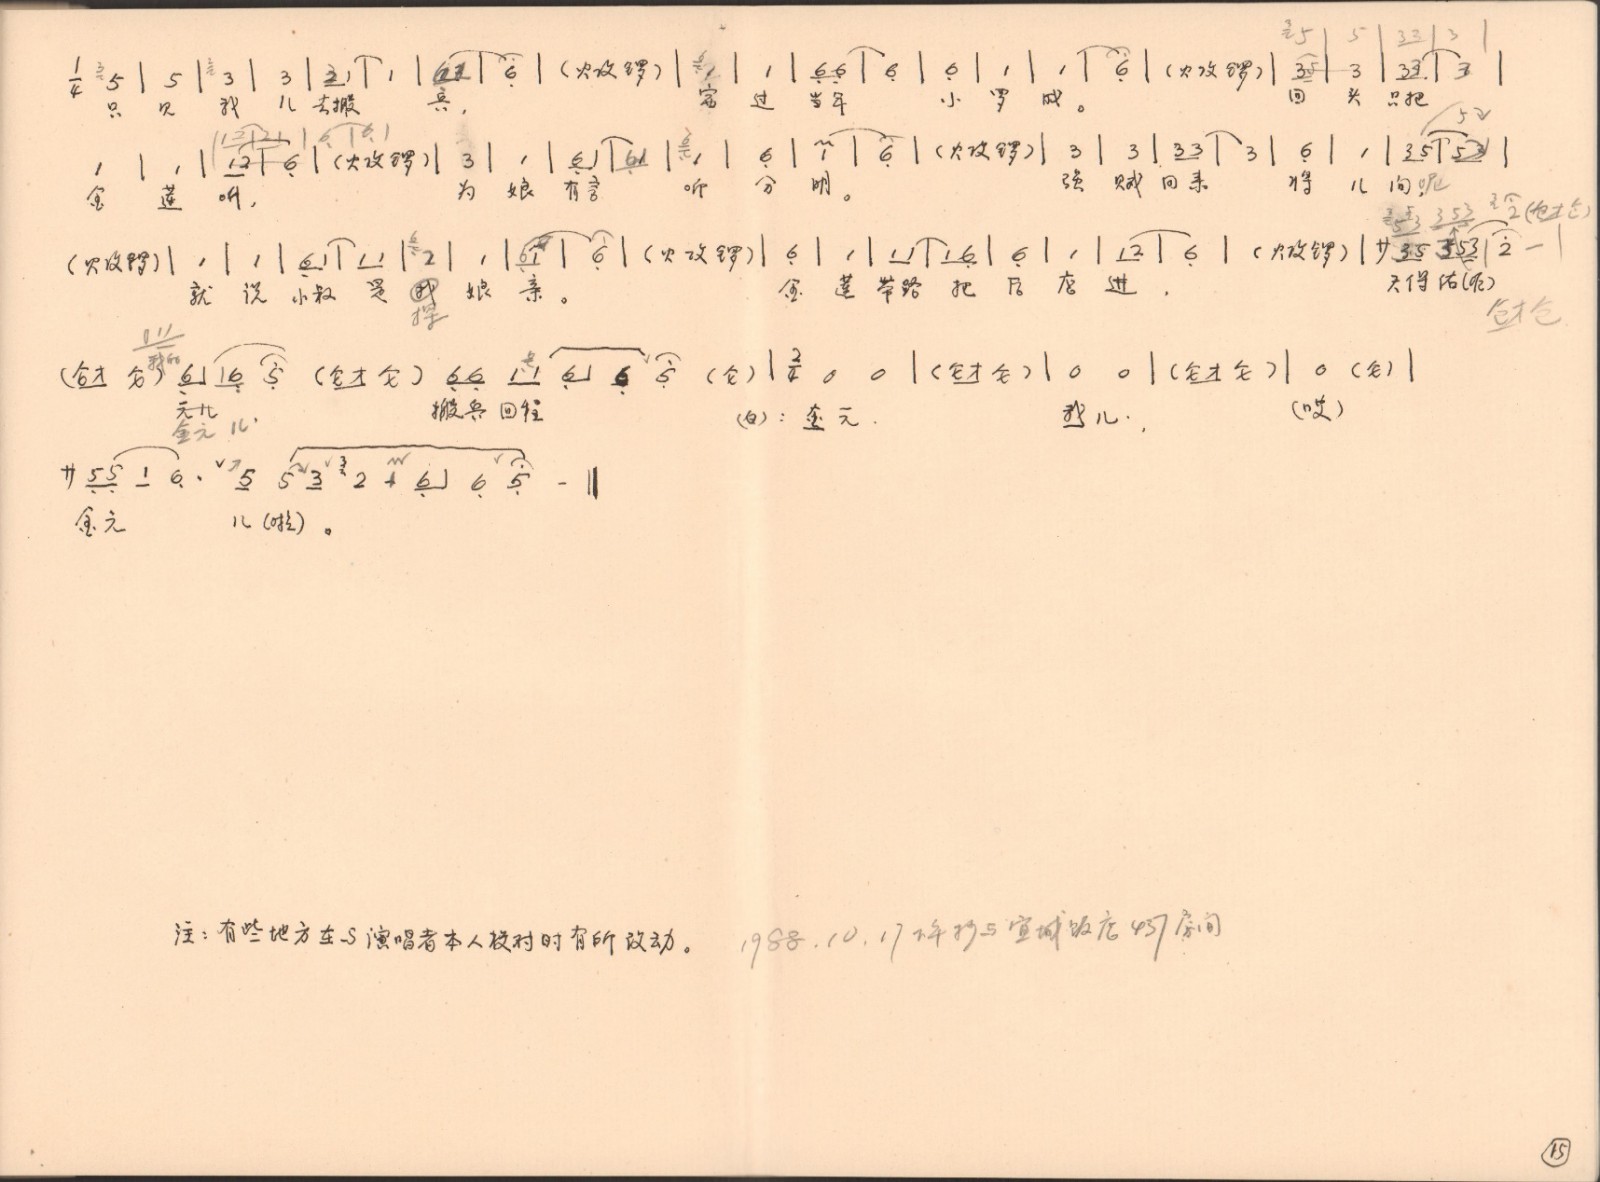 1/4 5 | 5 | 3 | 3 | 2 1 | 1 | 6 1 | 6 | (火攻锣) | 1 | 1 | 6 6 | 6 | 6 | 1 | 1 | 6 | (火攻锣) | 3 5 | 3 | 3 3 | 3 |
只 见 我 儿 去搬 兵, 赛 过 当年 小 罗 成。 回 头 只把
1 | 1 | 1 2 | 6 | (火攻锣) | 3 | 1 | 6 1 | 6 1 | 1 | 6 | 1 | 6 | (火攻锣) | 3 | 3 | 3 3 | 3 | 6 | 1 | 3 5 | 5 3 |
金 莲 听, 为 娘 有言 听 分 明。 强 贼 回来 将 儿 问, 呢
(火攻锣) | 1 | 1 | 6 1 | 1 1 | 2 | 1 | 6 1 | 6 | (火攻锣) | 6 | 1 | 1 1 | 1 6 | 6 | 1 | 1 2 | 6 | (火攻锣) | サ 3 5 3 5 3 | 2 - |
就 说 小叔 是 我 娘 亲。 金 莲 带路 把 后 店 进, 天得佑(呃)
仓才仓
(仓才 仓) 6 1 1 6 5 (仓才 仓) 6 6 1 1 6 1 6 5 (仓) | 2/4 0 0 | (仓才 仓) | 0 0 | (仓才 仓) | 0 (仓) |
元儿 搬兵 回程 (白): 金元. 我儿., (哎)
金元 儿.
サ 5 5 1 6 · 5 5 3 2 1 6 1 6 5 - ‖
金元 儿(啦)。
注:有些地方在与演唱者本人校对时有所改动。 1988.10.17 抄与宣城饭店437房间
15